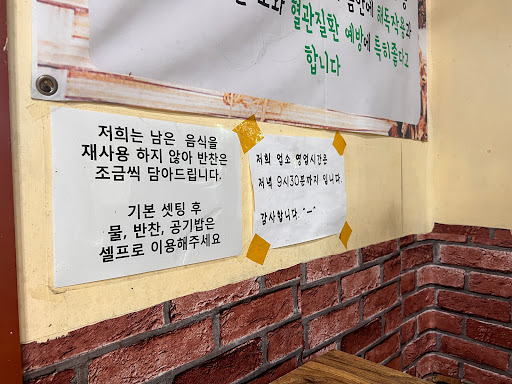 혈관질환 예방에 특히좋다고
합니다
저희는 남은 음식을
재사용 하지 않아 반찬은
조금씩 담아드립니다.
기본 셋팅 후
물, 반찬, 공기밥은
셀프로 이용해주세요
저희 업소 영업시간은
저녁 9시30분까지 입니다.
감사합니다. ^-^